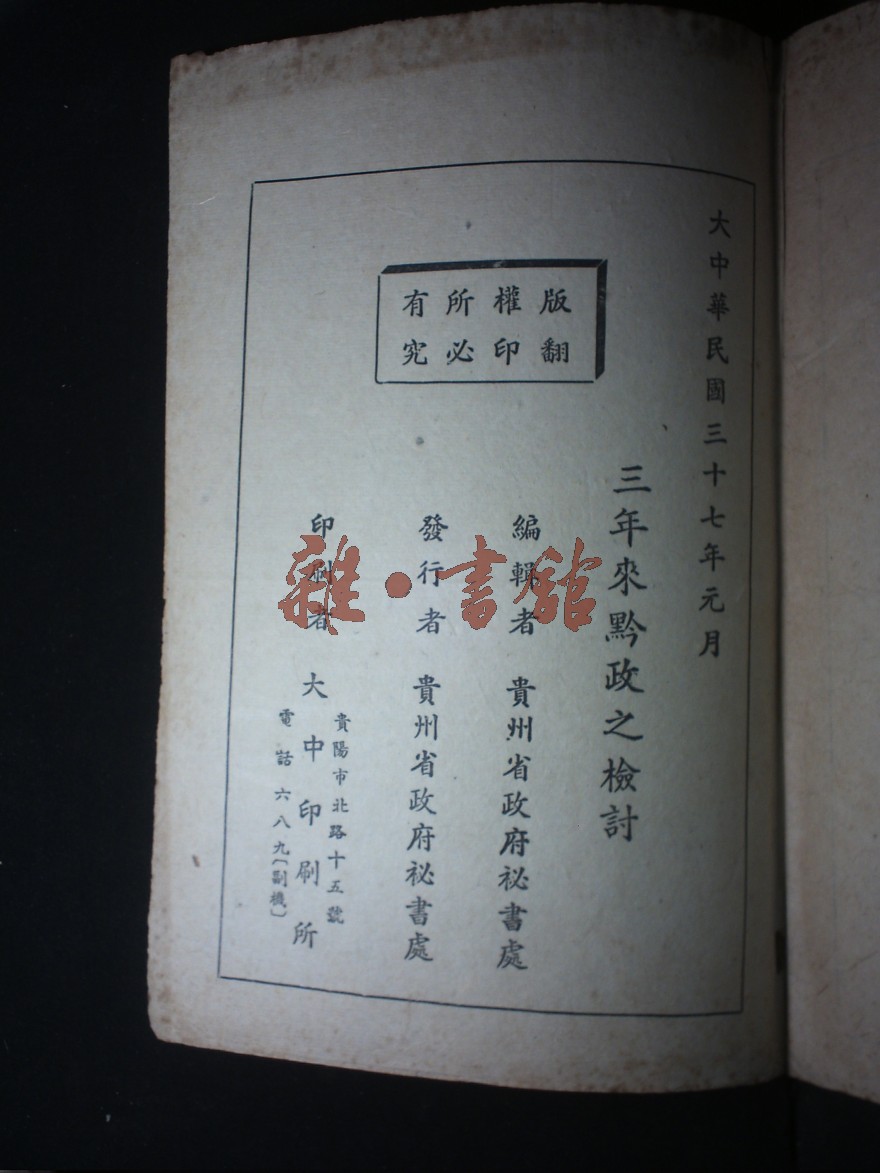 大中華民國三十七年元月
三年來黔政之檢討
版權所有
翻印必究
編輯者 貴州省政府祕書處
發行者 貴州省政府祕書處
印刷者 大中印刷所
貴陽市北路十五號
電話六八九〔副機〕
雜·書館